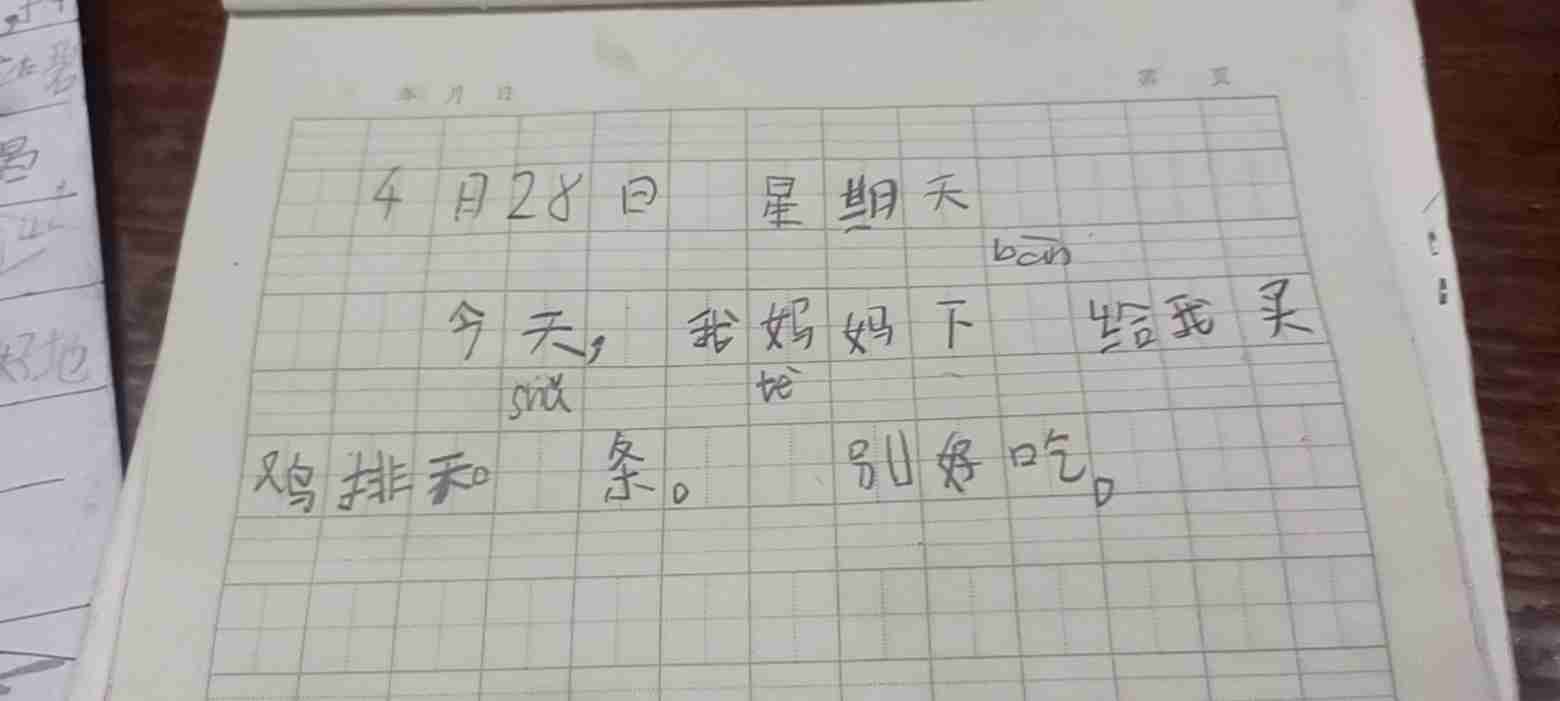 年 月 日 第 页
4月28日 星期天
bān
今天，我妈妈下 给我买
shǔ tè
鸡排和 条。 别好吃。
好地